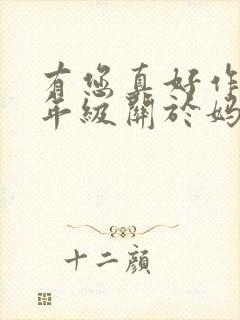 有您真好作
年級關於媽
十二顏